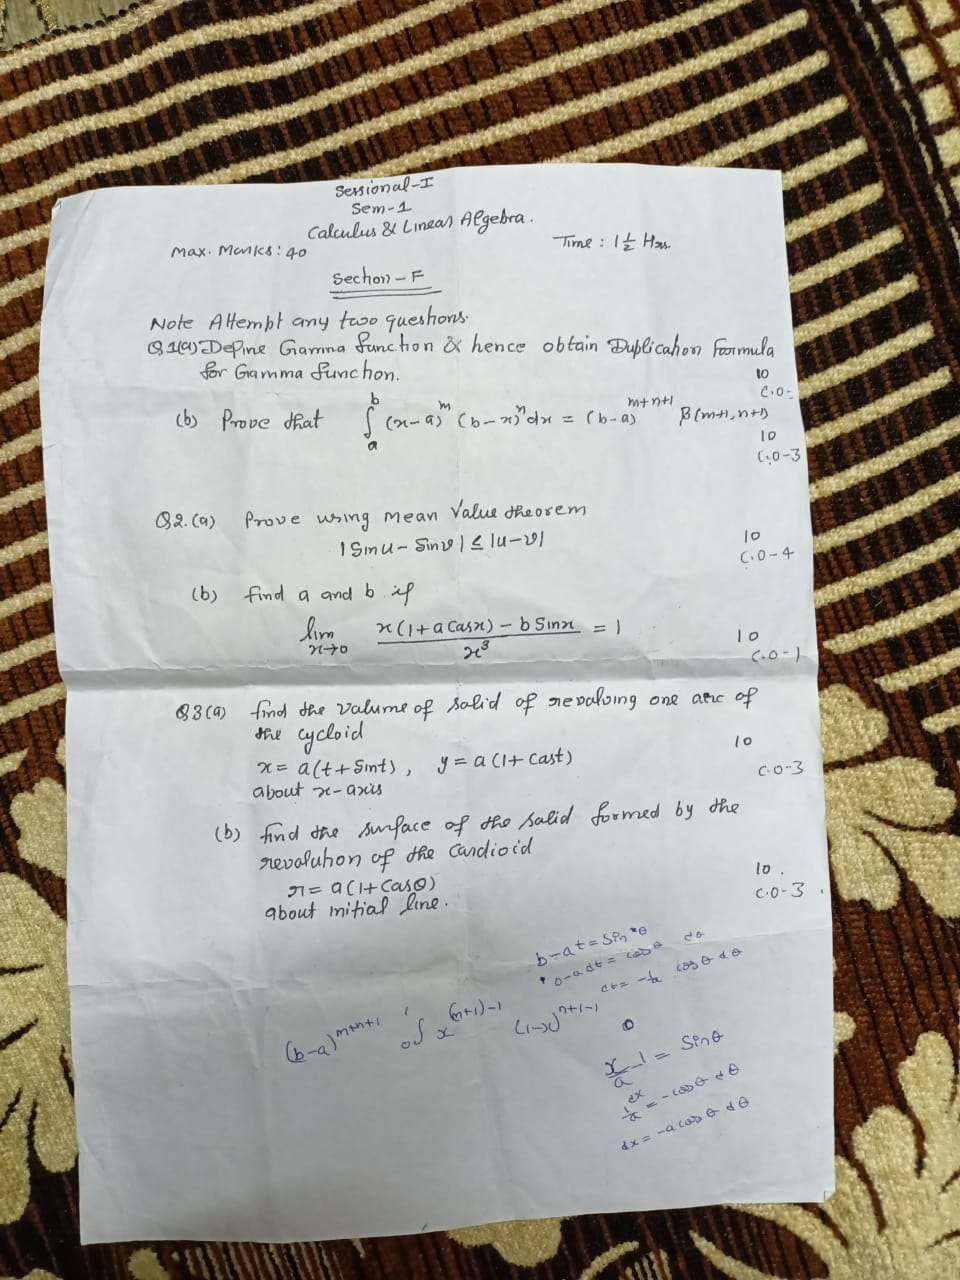 Sessional-I
Sem-1
Calculus & Linear Algebra.
Max. Marks: 40
Time: 1½ Hrs.
Section-F
Note Attempt any two questions.
Q1(a) Define Gamma function & hence obtain Duplication Formula
for Gamma function.
10
C.O-
(b) Prove that ∫_a^b (x-a)^m (b-x)^n dx = (b-a)^{m+n+1} β(m+1, n+1)
10
C.O-3
Q2.(a) Prove using Mean Value theorem
|Sinu - Sinv| ≤ |u-v|
10
C.O-4
(b) find a and b if
lim_{x→0} x(1+a Cosx) - b Sinx / x³ = 1
10
C.O-1
Q3(a) find the volume of solid of revolving one arc of
the cycloid
10
x = a(t+Sint), y = a(1+Cost)
C.O-3
about x-axis
(b) find the surface of the solid formed by the
revolution of the Cardioid
r = a(1+Cosθ)
10.
about initial line.
C.O-3.
b-at = Sin θ
0-adt = cosθ dθ
dt = -1/a cosθ dθ
(b-a)^{m+n+1} ∫_0^1 x^{(m+1)-1} (1-x)^{n+1-1}
0
x/a - 1 = Sinθ
dx
1/a = -cosθ dθ
dx = -a cosθ dθ